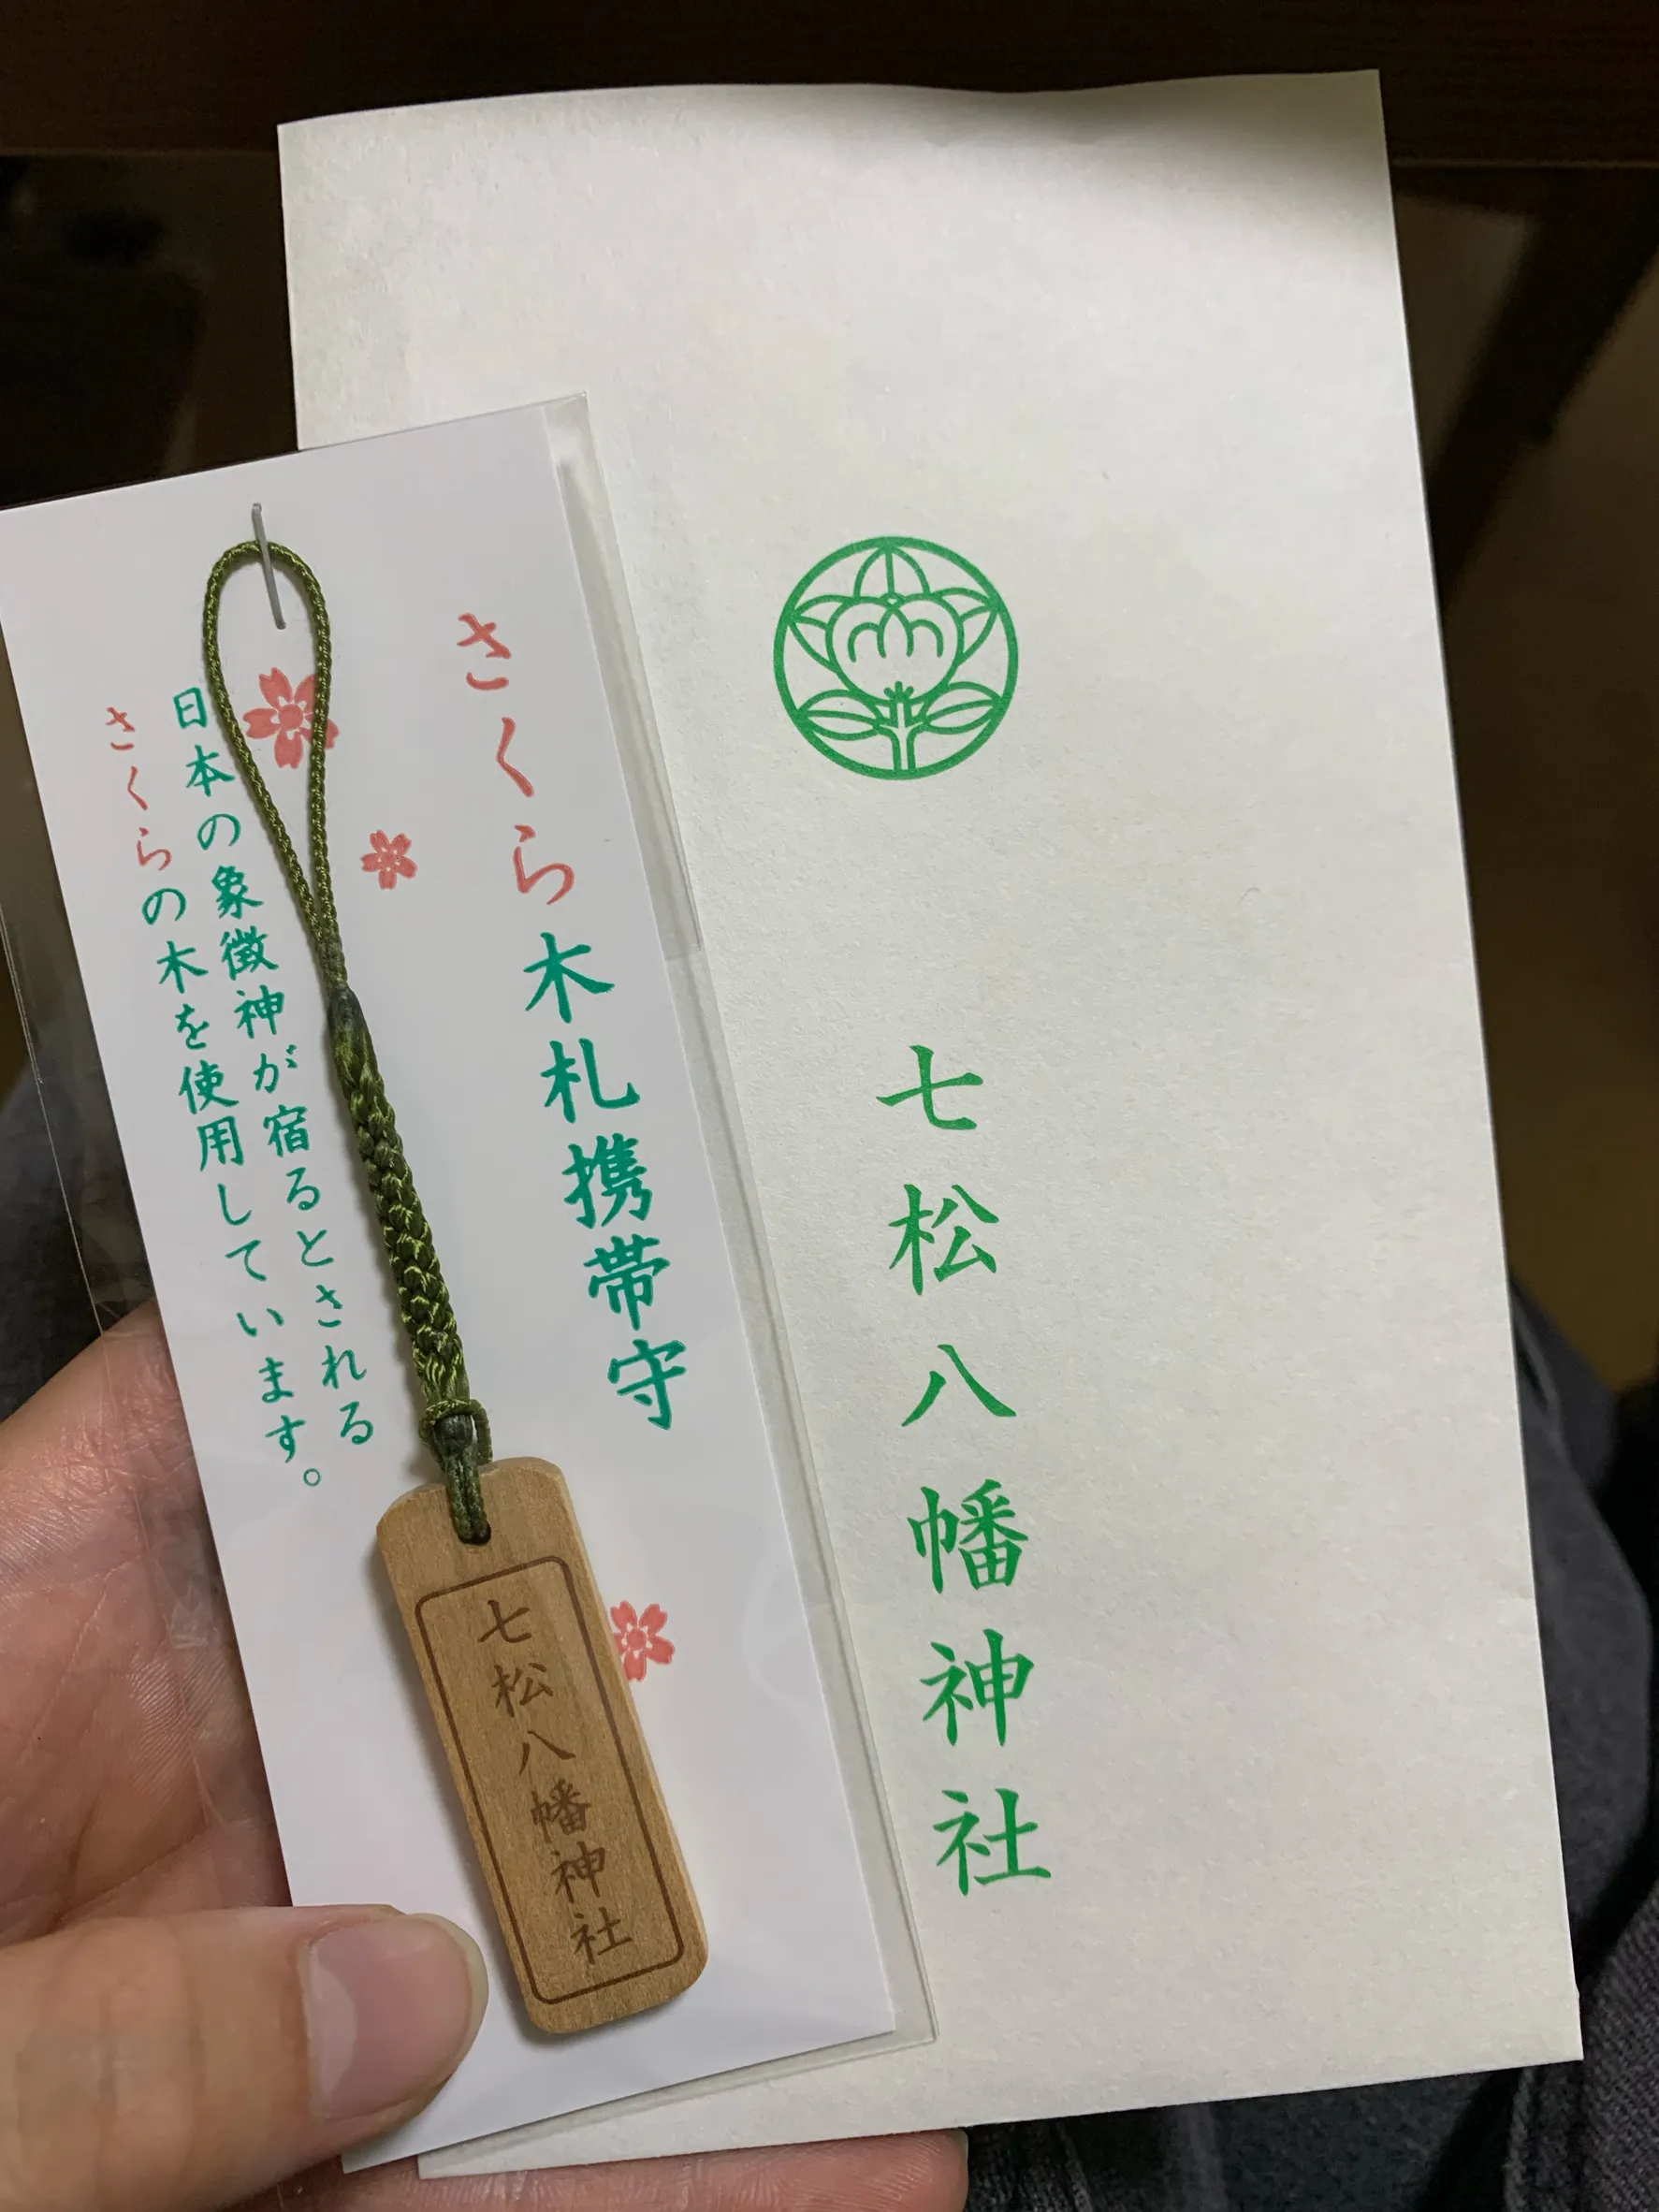 さくら木札携帯守
日本の象徴神が宿るとされる
さくらの木を使用しています。
七松八幡神社
七松八幡神社